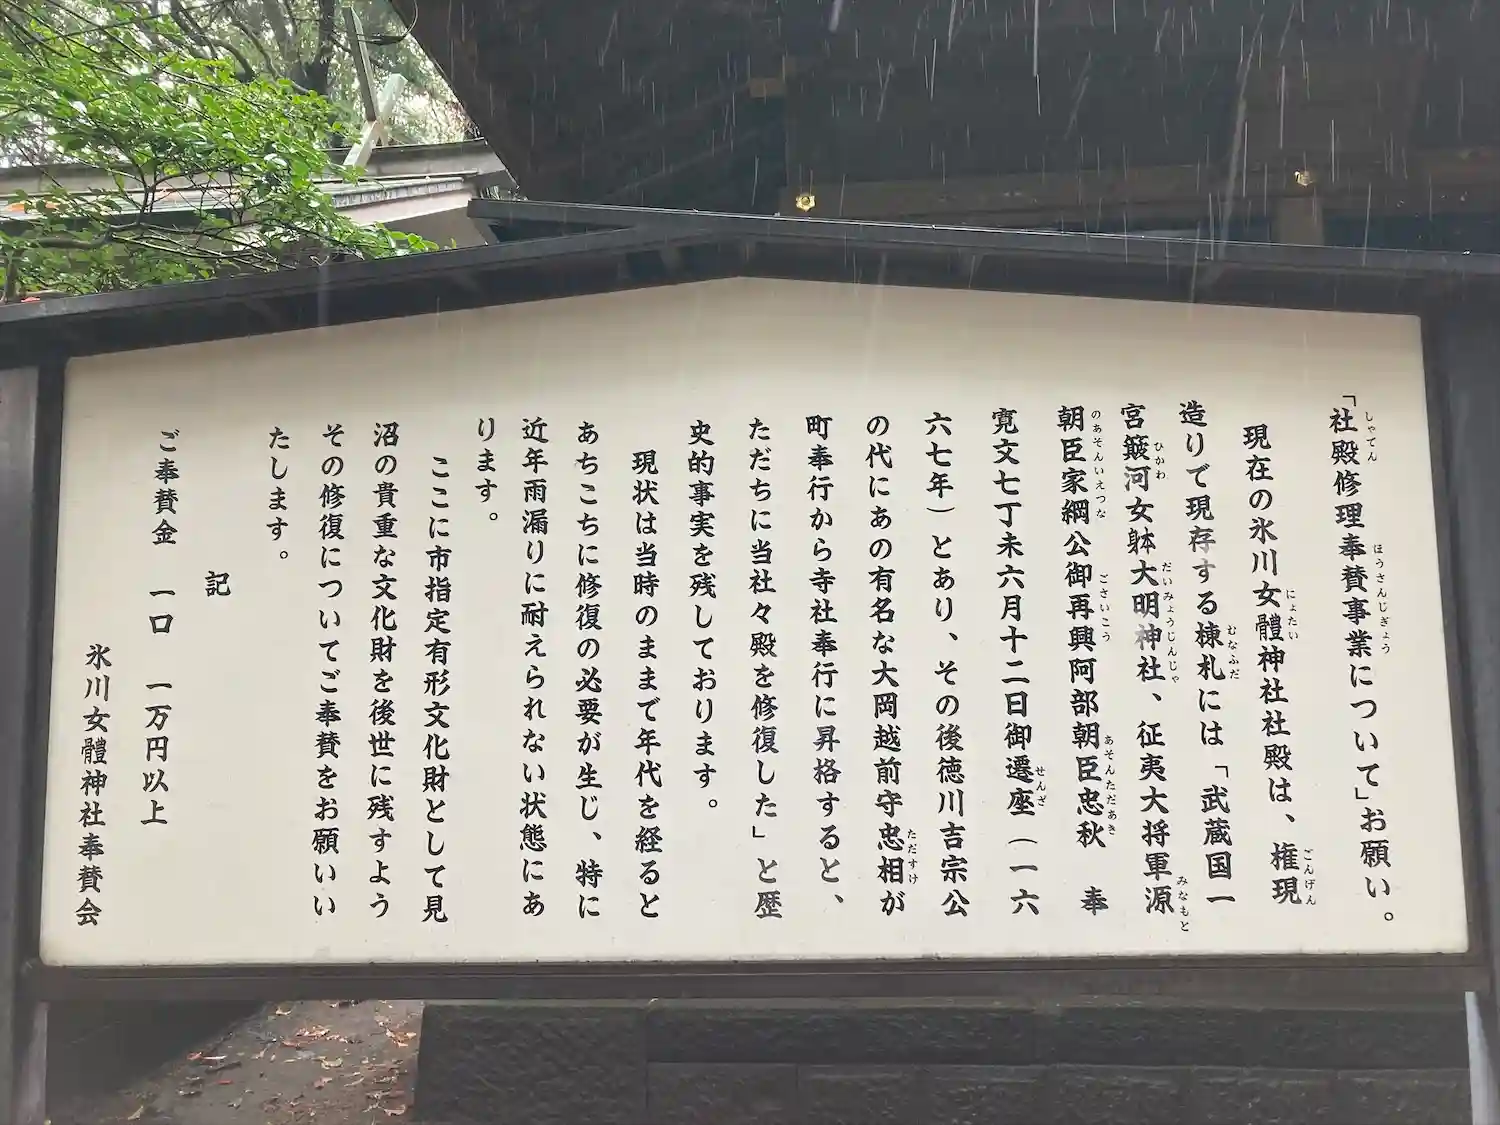 「社殿修理奉賛事業について」お願い。
現在の氷川女體神社社殿は、権現
造りで現存する棟札には「武蔵国一
宮簸河女躰大明神社、征夷大将軍源
朝臣家綱公御再興阿部朝臣忠秋 奉
寛文七丁未六月十二日御遷座(一六
六七年)とあり、その後徳川吉宗公
の代にあの有名な大岡越前守忠相が
町奉行から寺社奉行に昇格すると、
ただちに当社々殿を修復した」と歴
史的事実を残しております。
現状は当時のままで年代を経ると
あちこちに修復の必要が生じ、特に
近年雨漏りに耐えられない状態にあ
ります。
ここに市指定有形文化財として見
沼の貴重な文化財を後世に残すよう
その修復についてご奉賛をお願いい
たします。
記
ご奉賛金 一口 一万円以上
氷川女體神社奉賛会